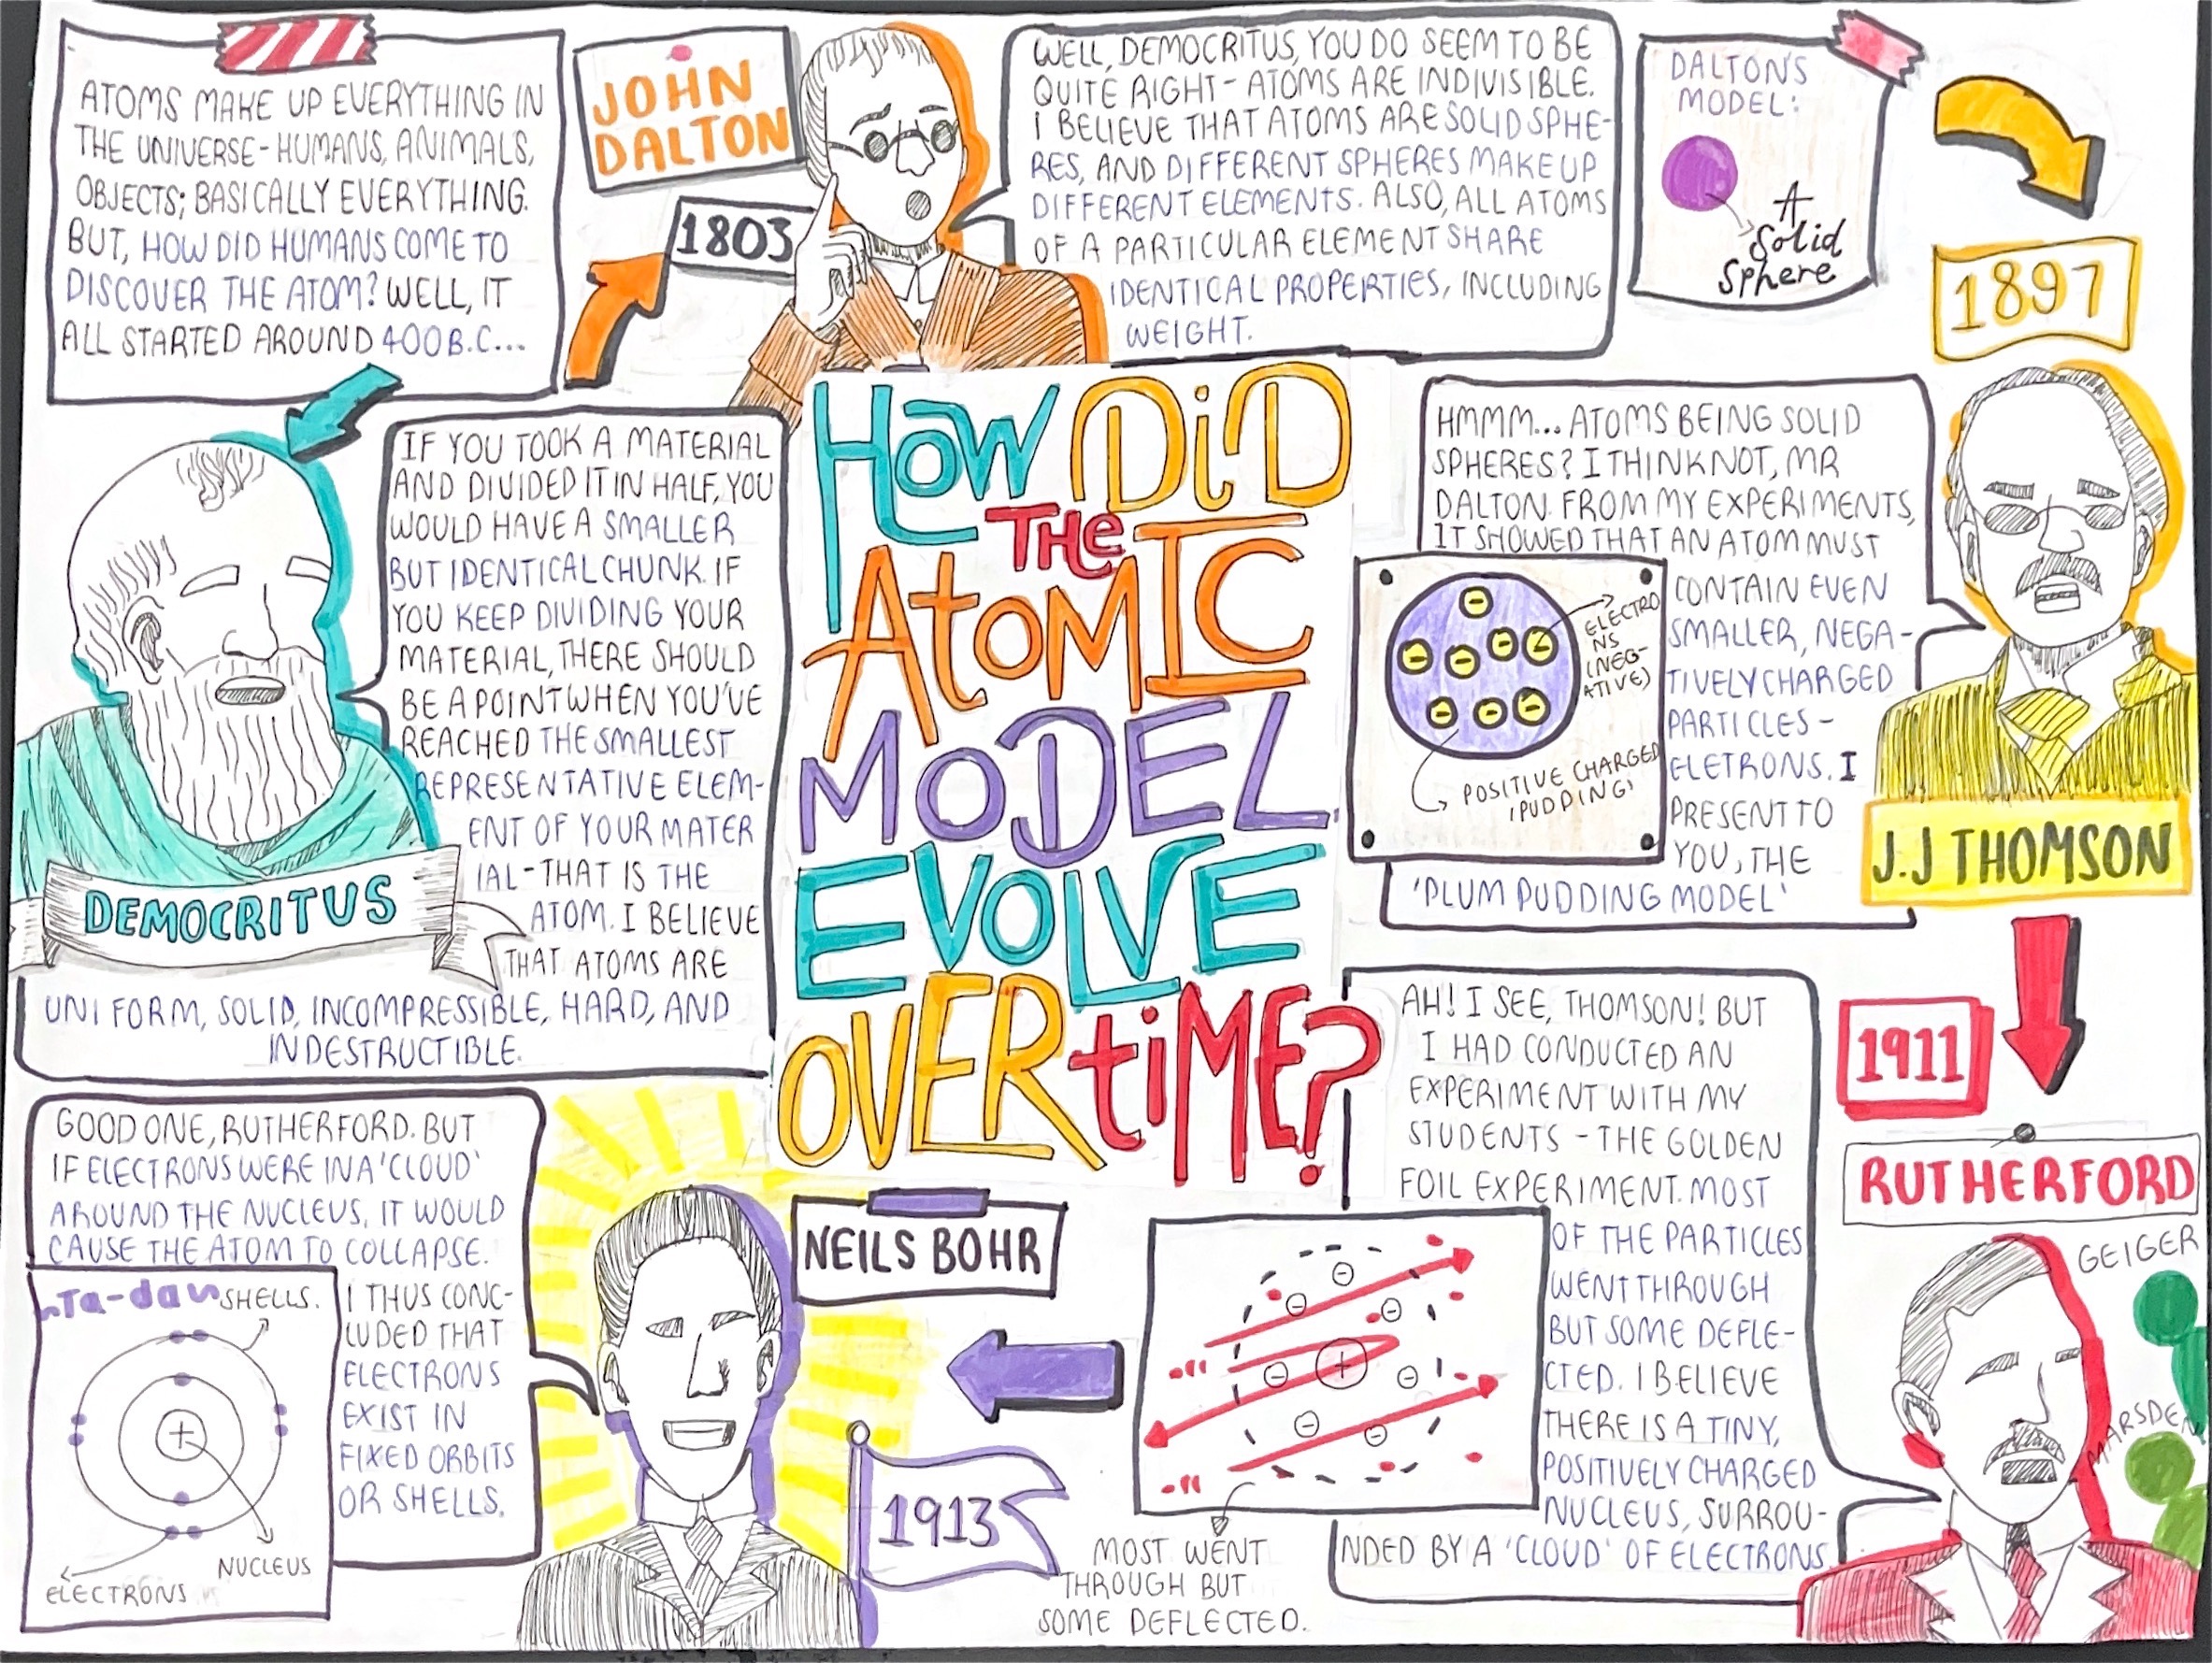 ATOMS MAKE UP EVERYTHING IN
THE UNIVERSE - HUMANS, ANIMALS,
OBJECTS; BASICALLY EVERYTHING.
BUT, HOW DID HUMANS COME TO
DISCOVER THE ATOM? WELL, IT
ALL STARTED AROUND 400 B.C...
DEMOCRITUS
IF YOU TOOK A MATERIAL
AND DIVIDED IT IN HALF, YOU
WOULD HAVE A SMALLER
BUT IDENTICAL CHUNK. IF
YOU KEEP DIVIDING YOUR
MATERIAL, THERE SHOULD
BE A POINT WHEN YOU'VE
REACHED THE SMALLEST
REPRESENTATIVE ELEM-
ENT OF YOUR MATER
IAL - THAT IS THE
ATOM. I BELIEVE
THAT ATOMS ARE
UNIFORM, SOLID, INCOMPRESSIBLE, HARD, AND
INDESTRUCTIBLE.
JOHN
DALTON
1803
WELL, DEMOCRITUS, YOU DO SEEM TO BE
QUITE RIGHT - ATOMS ARE INDIVISIBLE.
I BELIEVE THAT ATOMS ARE SOLID SPHE-
RES, AND DIFFERENT SPHERES MAKE UP
DIFFERENT ELEMENTS. ALSO, ALL ATOMS
OF A PARTICULAR ELEMENT SHARE
IDENTICAL PROPERTIES, INCLUDING
WEIGHT.
DALTON'S
MODEL:
A
Solid
Sphere
HOW DID
THE
ATOMIC
MODEL
EVOLVE
OVER TIME?
1897
J.J THOMSON
HMMM... ATOMS BEING SOLID
SPHERES? I THINK NOT, MR
DALTON. FROM MY EXPERIMENTS,
IT SHOWED THAT AN ATOM MUST
CONTAIN EVEN
SMALLER, NEGA-
TIVELY CHARGED
PARTICLES -
ELETRONS. I
PRESENT TO
YOU, THE
'PLUM PUDDING MODEL'
ELECTRO
NS
(NEG-
ATIVE)
POSITIVE CHARGED
'PUDDING'
1911
RUTHERFORD
GEIGER
MARSDEN
AH! I SEE, THOMSON! BUT
I HAD CONDUCTED AN
EXPERIMENT WITH MY
STUDENTS - THE GOLDEN
FOIL EXPERIMENT. MOST
OF THE PARTICLES
WENT THROUGH
BUT SOME DEFLE-
CTED. I BELIEVE
THERE IS A TINY,
POSITIVELY CHARGED
NUCLEUS, SURROU-
NDED BY A 'CLOUD' OF ELECTRONS
MOST WENT
THROUGH BUT
SOME DEFLECTED.
1913
NEILS BOHR
GOOD ONE, RUTHERFORD. BUT
IF ELECTRONS WERE IN A 'CLOUD'
AROUND THE NUCLEUS, IT WOULD
CAUSE THE ATOM TO COLLAPSE.
I THUS CONC-
LUDED THAT
ELECTRONS
EXIST IN
FIXED ORBITS
OR SHELLS.
Ta-da
SHELLS.
NUCLEUS
ELECTRONS